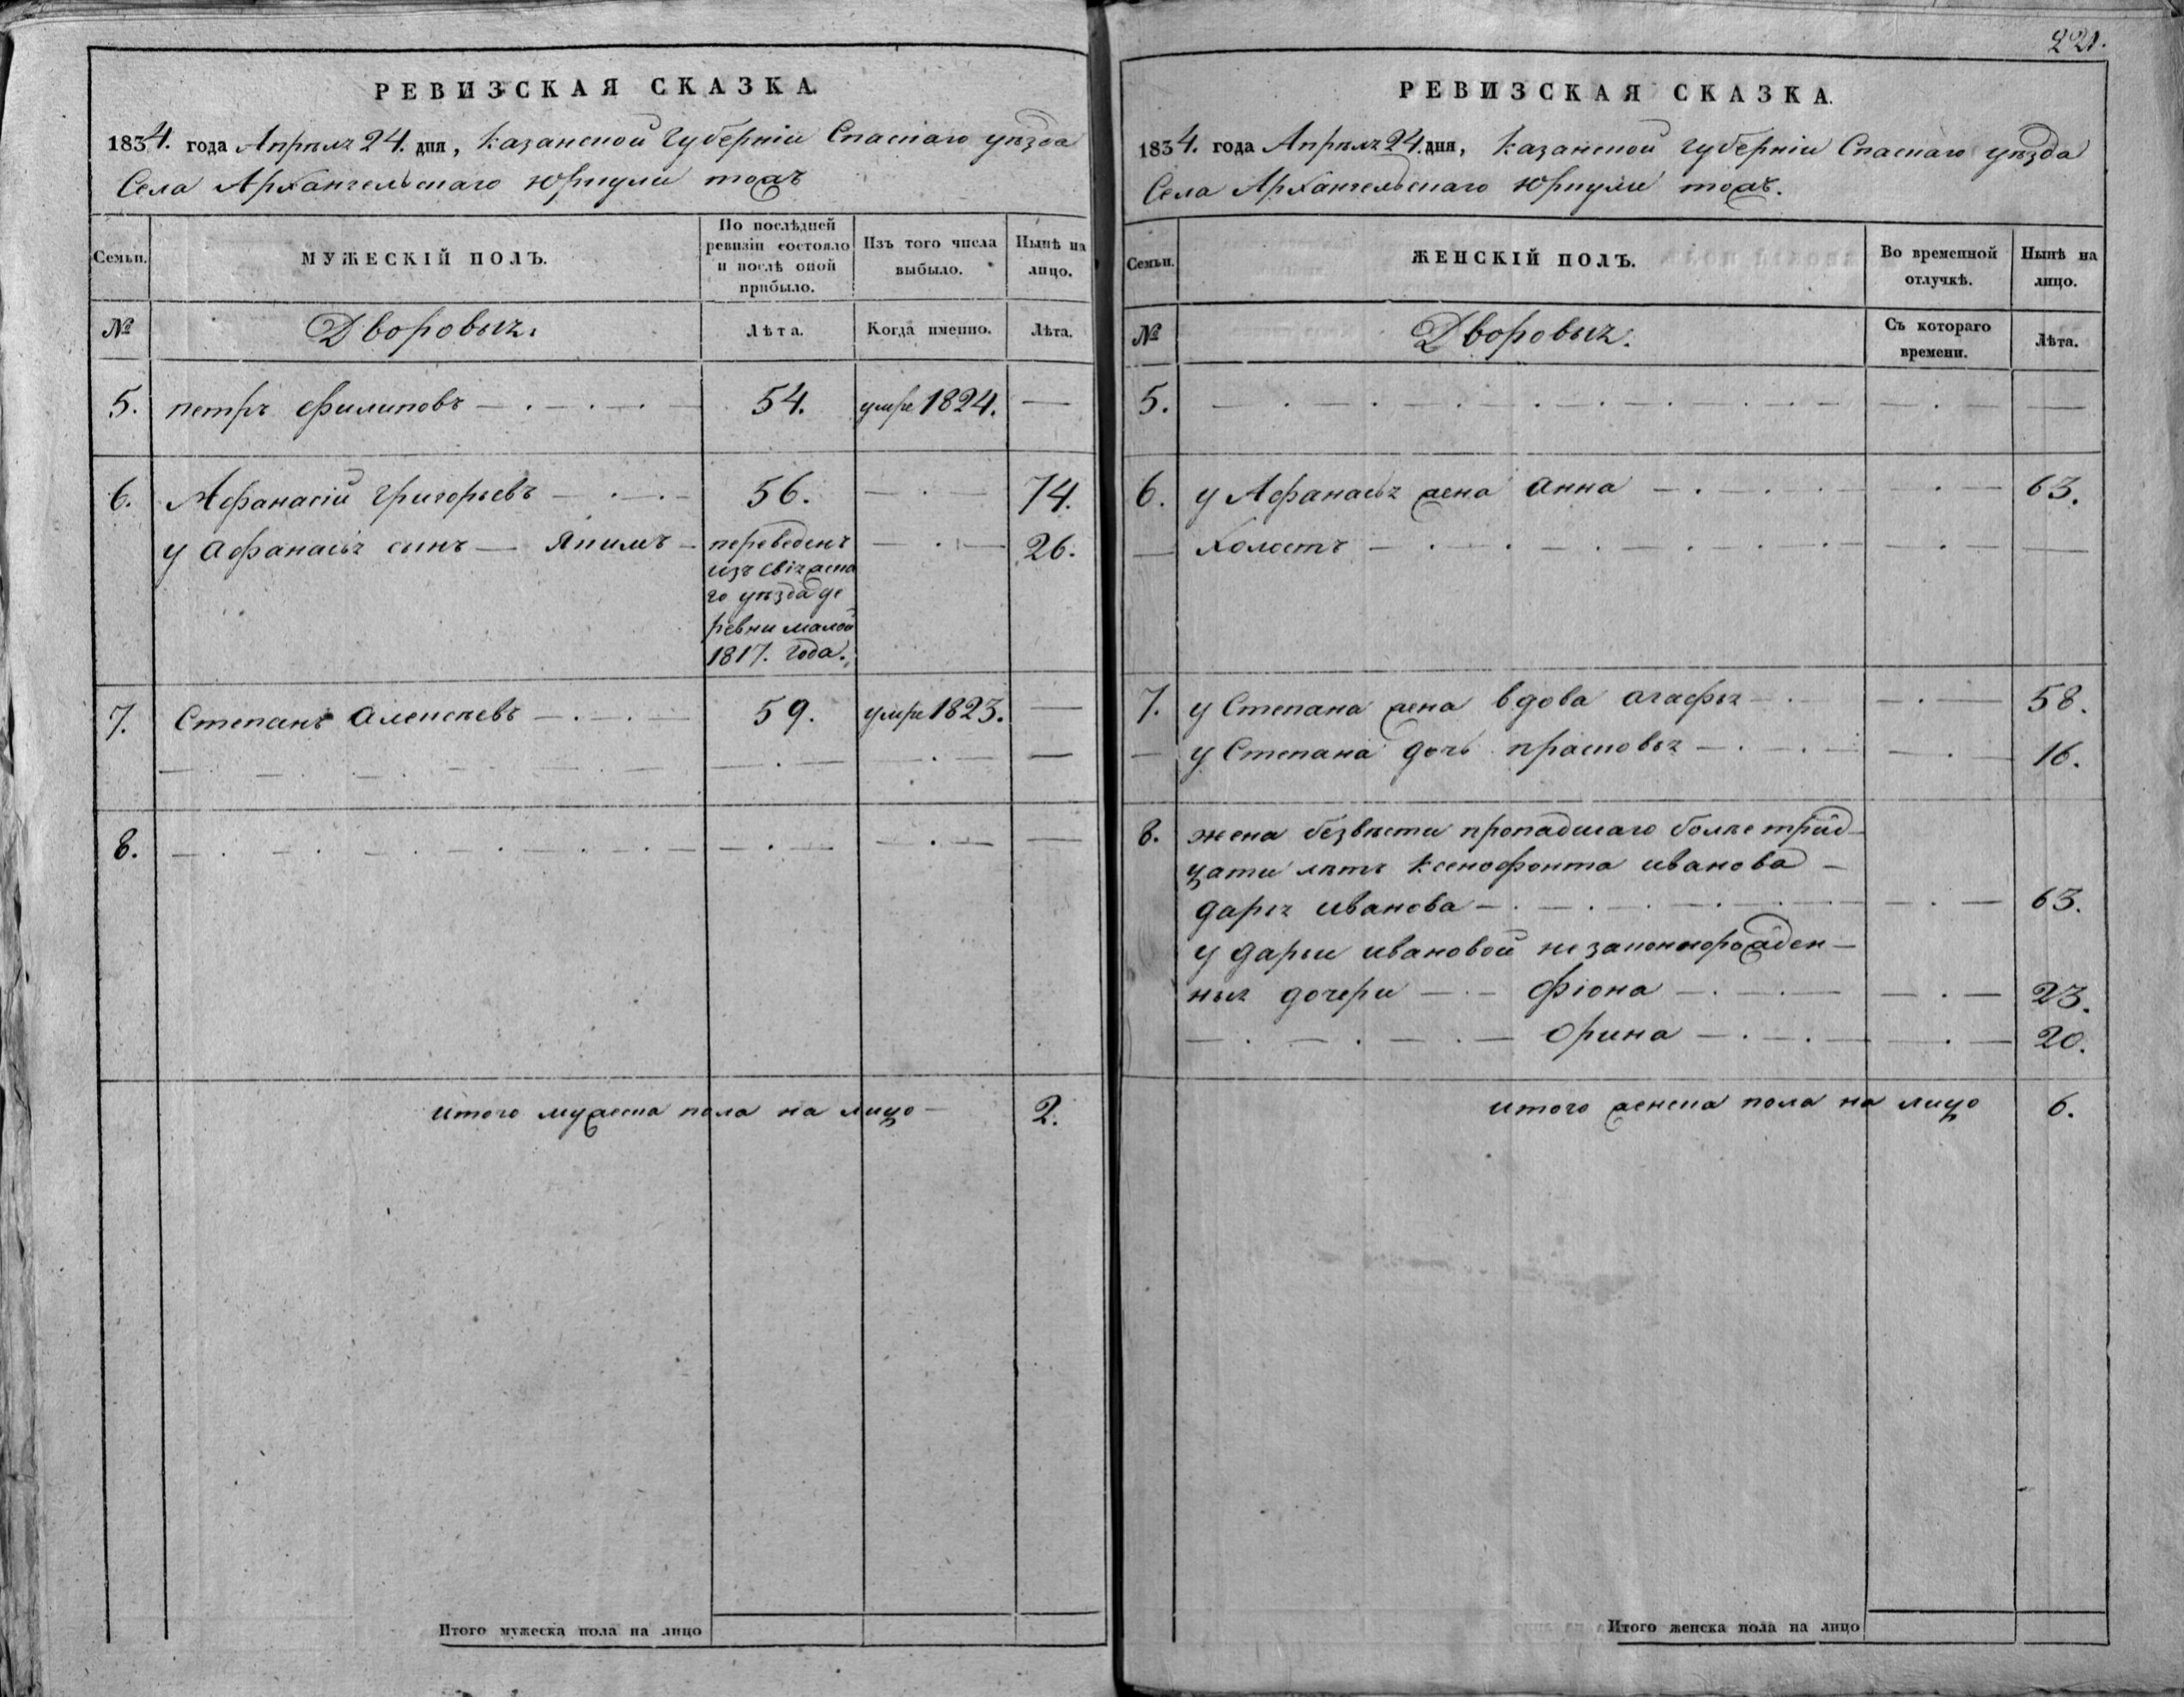 РЕВИЗСКАЯ СКАЗКА.
1834. года Апрѣля 24. дня, Казанской Губерніи Спаскаго уѣзда
Села Архангельскаго Юркули тожъ
Семьи.
МУЖЕСКІЙ ПОЛЪ.
По послѣдней
ревизіи состояло
и послѣ оной
прибыло.
Изъ того числа
выбыло.
Нынѣ на
лицо.
№
Дворовыя.
Лѣта.
Когда именно.
Лѣта.
5. петръ филиповъ 54. умре 1824.
6. Афанасій григорьевъ 56. 74.
у Афанасья сынъ Якимъ переведенъ 26.
изъ свіжска
го уѣзда де
ревни малой
1817. года.
7. Степанъ Алексѣевъ 59. умре 1823.
8.
итого мужеска пола на лицо 2.
Итого мужеска пола на лицо
221.
РЕВИЗСКАЯ СКАЗКА.
1834. года Апрѣля 24. дня, Казанской губерніи Спаскаго уѣзда
Села Архангельскаго Юркули тожъ.
Семьи.
ЖЕНСКІЙ ПОЛЪ.
Во временной
отлучкѣ.
Нынѣ на
лицо.
№
Дворовыя.
Съ котораго
времени.
Лѣта.
5.
6. у Афанасья жена Анна 63.
Холостъ
7. у Степана жена вдова агафья 58.
у Степана дочь прасковья 16.
8. жена безвѣсти пропадшаго болѣе трид
цати лѣтъ ксенофонта иванова
дарья иванова 63.
у дарьи ивановой незаконнорожден
ныя дочери фіона 23.
Орина 20.
итого женска пола на лицо 6.
Итого женска пола на лицо